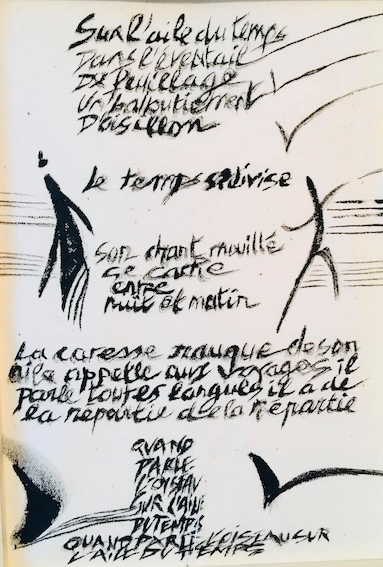 Sur l'aile du temps
Dans l'éventail
De feuillage
Un balbutiement
D'oisillon
Le temps se divise
son chant mouillé
se cache
entre
nuit et matin
La caresse rauque de son
aile appelle aux voyages il
parle toutes langues il a de
la répartie de la répartie
QUAND
PARLE
L'OISEAU
SUR L'AILE
DU TEMPS
QUAND PARLE L'OISEAU SUR
L'AILE DU TEMPS